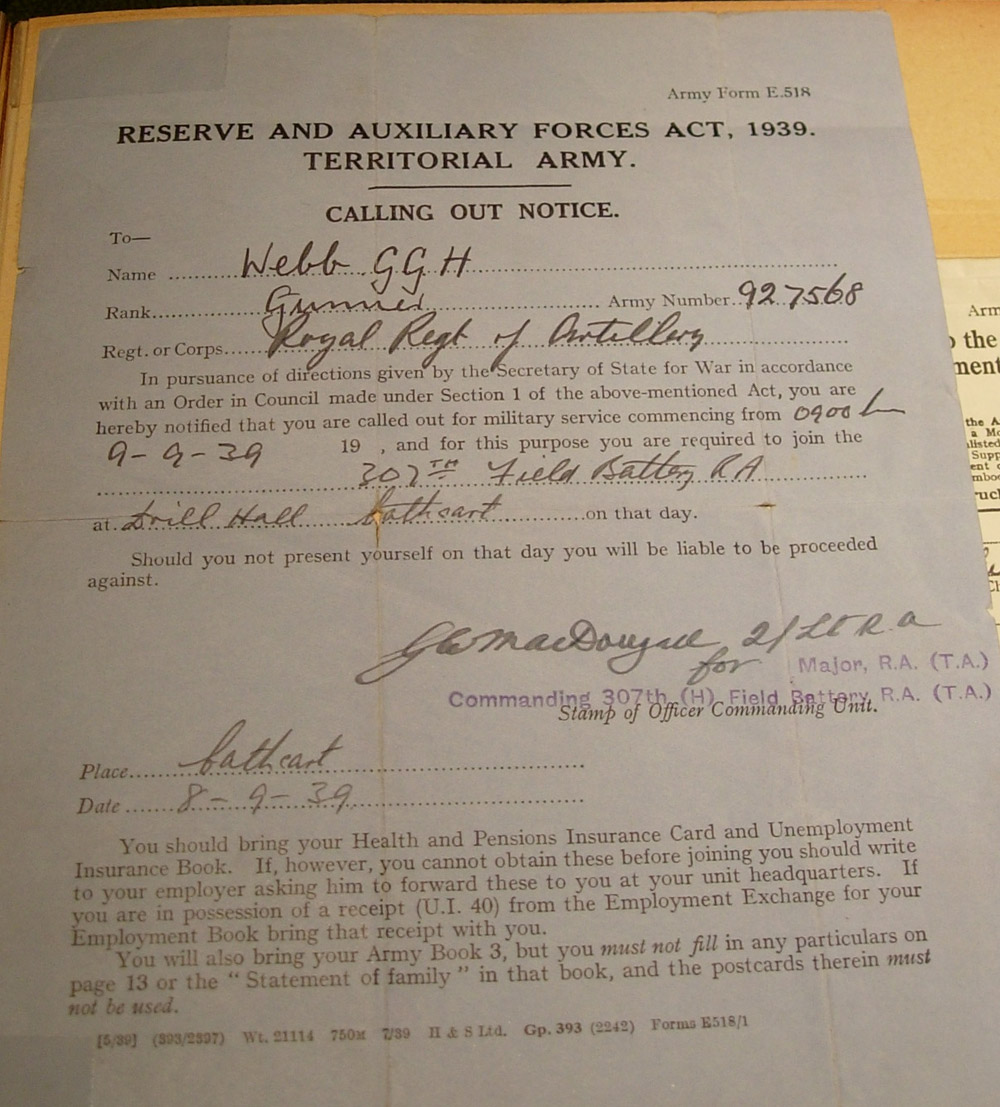 Army Form E.518
RESERVE AND AUXILIARY FORCES ACT, 1939.
TERRITORIAL ARMY.
CALLING OUT NOTICE.
To—
Name Webb G G H
Rank Gunner Army Number 927568
Regt. or Corps Royal Regt of Artillery
In pursuance of directions given by the Secretary of State for War in accordance
with an Order in Council made under Section 1 of the above-mentioned Act, you are
hereby notified that you are called out for military service commencing from 0900 h
9-9-39 19 , and for this purpose you are required to join the
307TH Field Battery RA
at Drill Hall Cathcart on that day.
Should you not present yourself on that day you will be liable to be proceeded
against.
MacDougall 2/Lt R.A
for Major, R.A. (T.A.)
Commanding 307th (H) Field Battery, R.A. (T.A.)
Stamp of Officer Commanding Unit.
Place Cathcart
Date 8-9-39
You should bring your Health and Pensions Insurance Card and Unemployment
Insurance Book. If, however, you cannot obtain these before joining you should write
to your employer asking him to forward these to you at your unit headquarters. If
you are in possession of a receipt (U.I. 40) from the Employment Exchange for your
Employment Book bring that receipt with you.
You will also bring your Army Book 3, but you must not fill in any particulars on
page 13 or the "Statement of family" in that book, and the postcards therein must
not be used.
[5/39] (393/2397) Wt. 21114 750M 7/39 H & S Ltd. Gp. 393 (2242) Forms E518/1
Arm
the
ment
the A
a Mo
listed
Supp
ent o
mbod
ruc